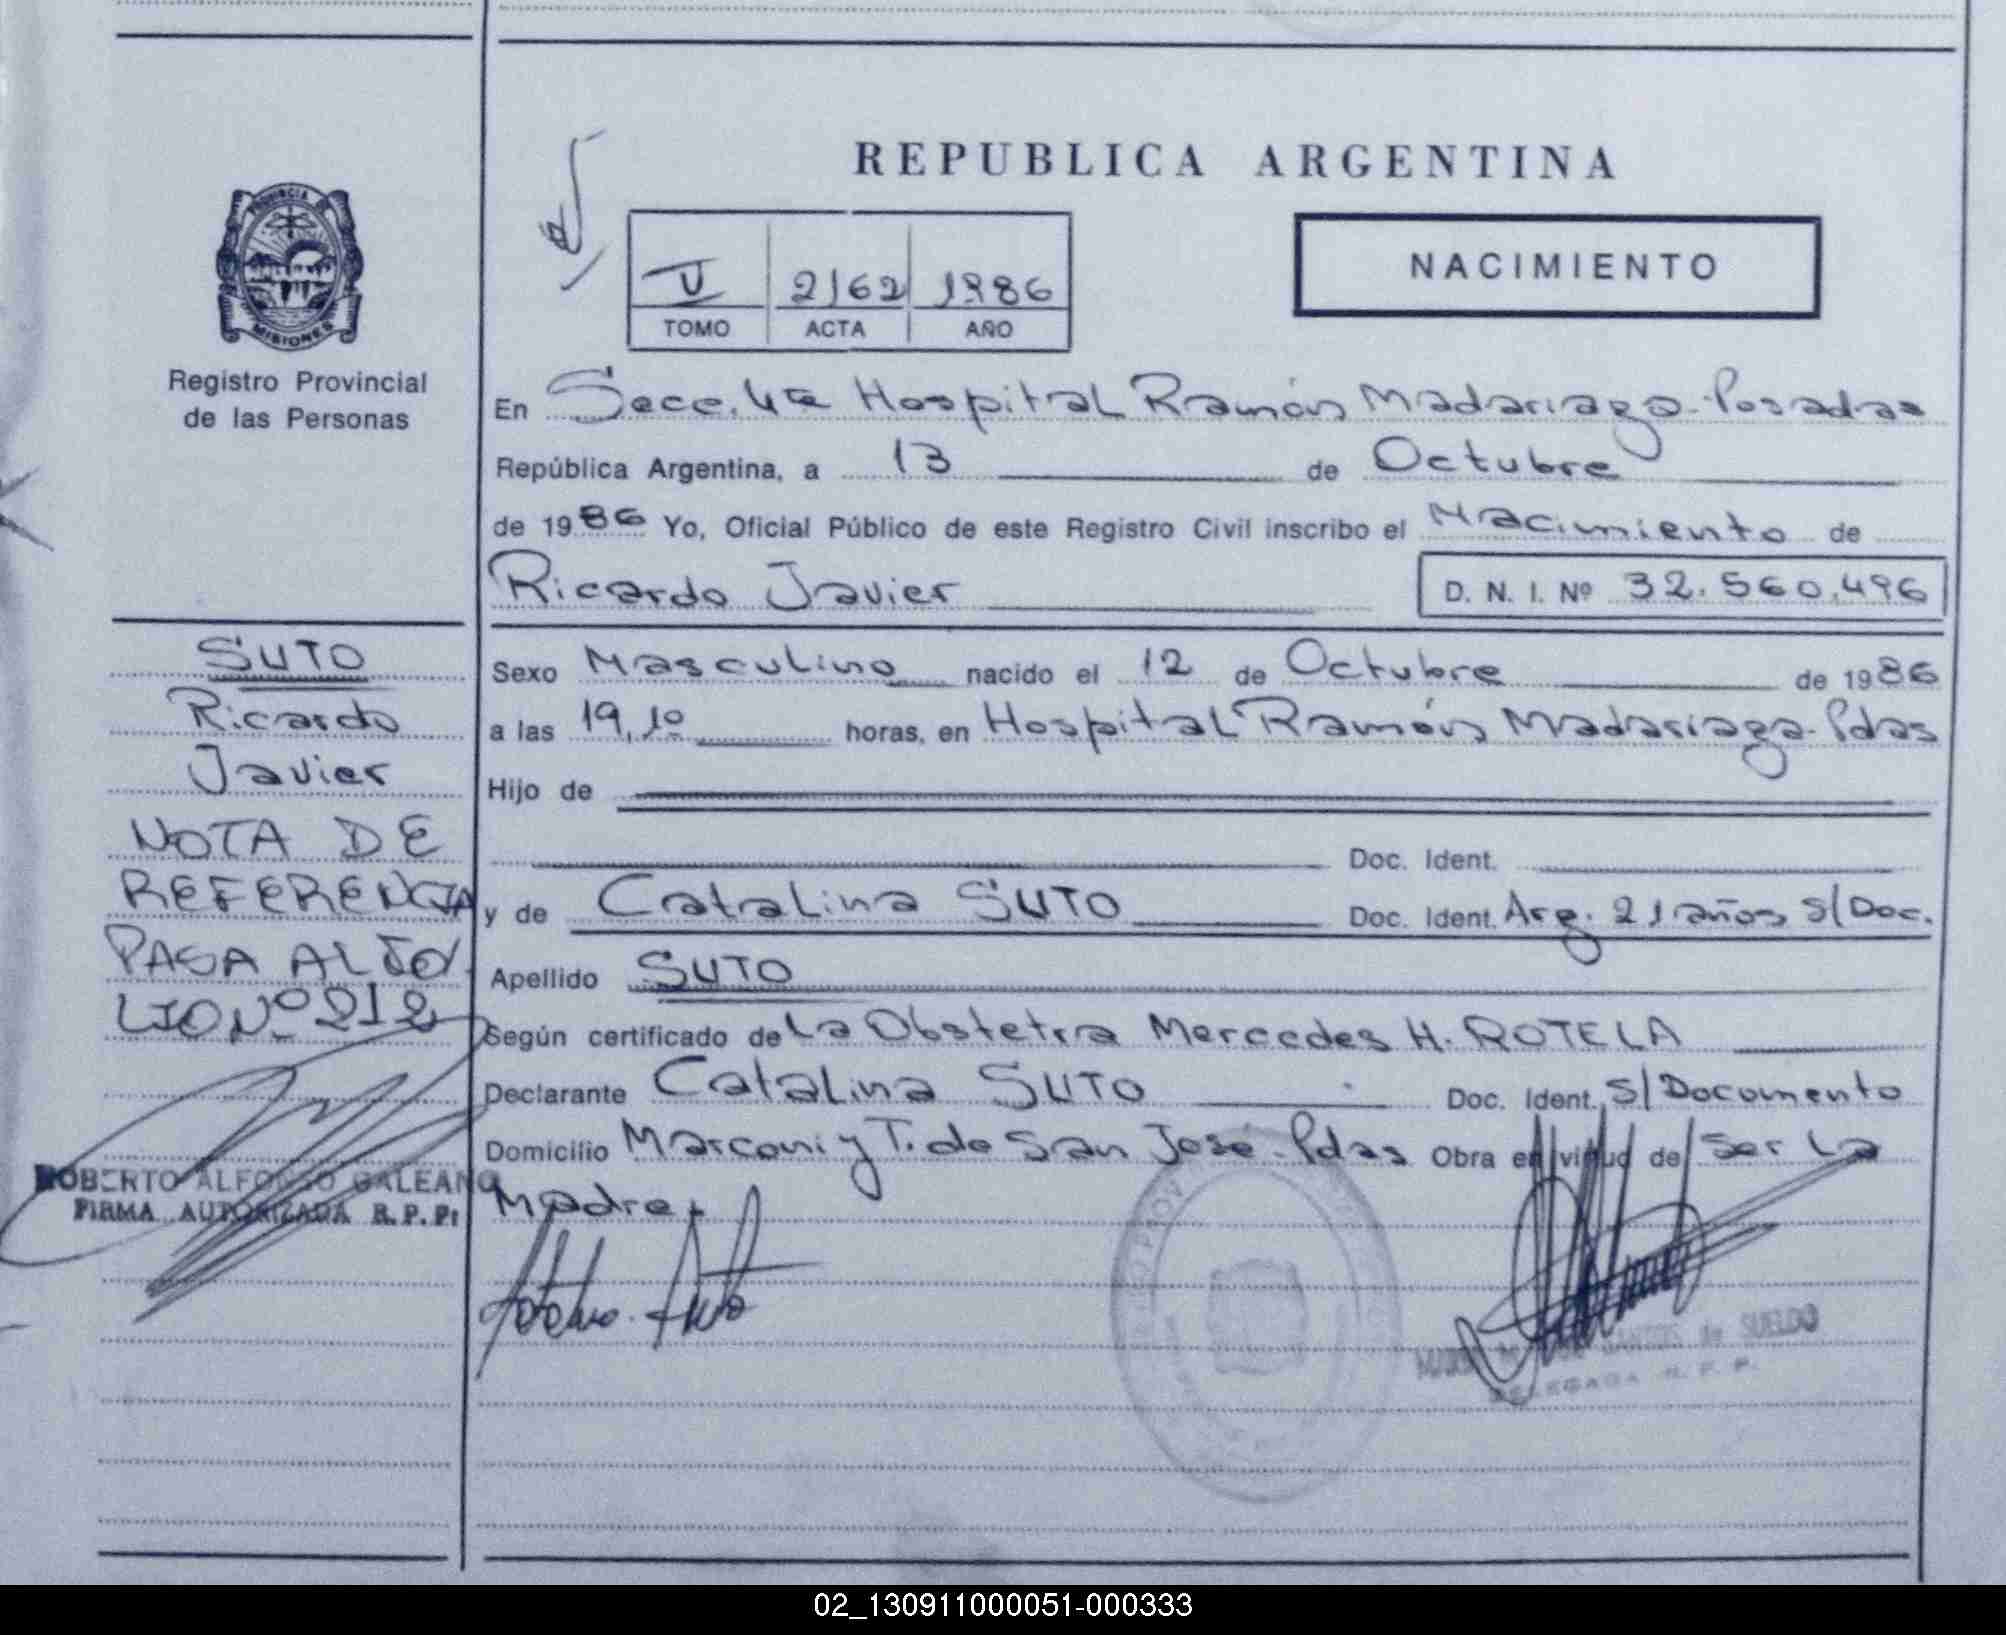 REPUBLICA ARGENTINA
NACIMIENTO
V 2162 1986
TOMO ACTA AÑO
PROVINCIA DE
MISIONES
Registro Provincial
de las Personas
En Secc. 4ta Hospital Ramón Madariaga - Posadas
República Argentina, a 13 de Octubre
de 1986 Yo, Oficial Público de este Registro Civil inscribo el Nacimiento de
Ricardo Javier D. N. I. Nº 32.560.496
Sexo Masculino nacido el 12 de Octubre de 1986
a las 19,10 horas, en Hospital Ramón Madariaga - Pdas
Hijo de
Doc. Ident.
y de Catalina SUTO Doc. Ident. Arg. 21 años S/Doc.
Apellido SUTO
Según certificado de La Obstetra Mercedes H. ROTELA
Declarante Catalina SUTO Doc. Ident. S/Documento
Domicilio Marconi y T. de San José - Pdas Obra en virtud de Ser La
Madre.
SUTO
Ricardo
Javier
NOTA DE
REFERENCIA
PASA AL FO
LIO Nº 212
ROBERTO ALFONSO GALEANO
FIRMA AUTORIZADA R.P.P.
de SUELDO
DELEGADA R. P. P.
02_130911000051-000333